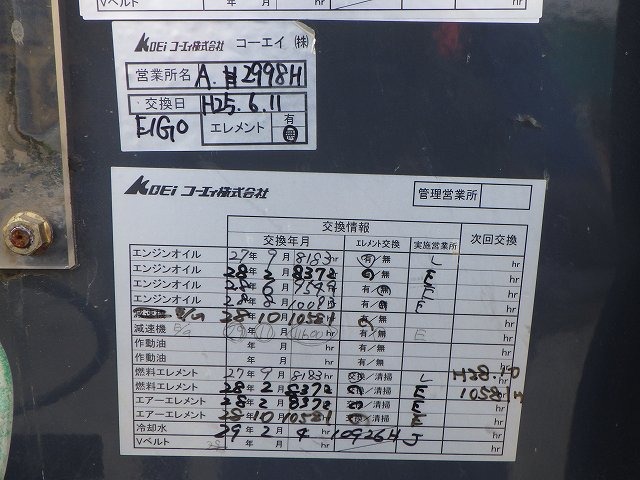 Vベルト 年 月 hr
KOEi コーエィ株式会社 コーエイ ㈱
営業所名 A. #2998H
交換日 H25.6.11
EIGO エレメント 有 無
KOEi コーエィ株式会社 管理営業所
交換情報 次回交換
交換年月 エレメント交換 実施営業所
エンジンオイル 27年 9月 8183hr 有/無 L hr
エンジンオイル 28年 2月 8372hr E hr
エンジンオイル 28年 6月 hr 有/無 E hr
エンジンオイル 28年 8月 hr 有/無 E hr
E/G 28年 10月 10581hr hr
減速機 E/G 29年 11月 hr 有/無 E hr
作動油 年 月 hr 有/無 hr
作動油 年 月 hr 有/無 hr
燃料エレメント 27年 9月 8183hr 交換/清掃 L
燃料エレメント 28年 2月 8372hr /清掃 E 10581H
エアーエレメント 28年 2月 8372hr /清掃 E hr
エアーエレメント 28年 10月 10581hr 交換/清掃 E hr
冷却水 29年 2月 4hr 10926H J hr
Vベルト 年 月 hr hr